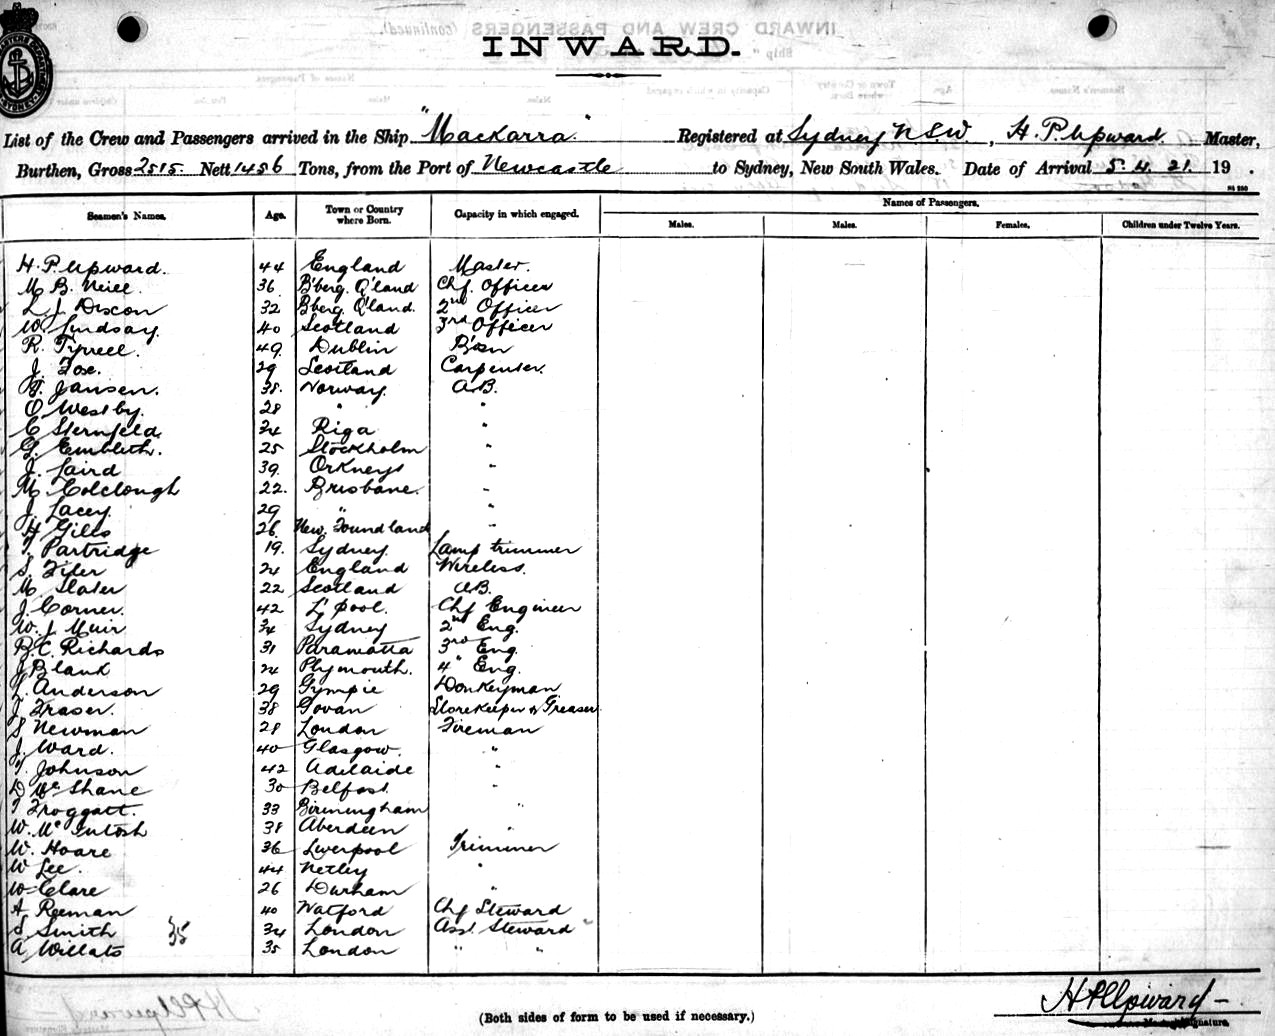 INWARD.
List of the Crew and Passengers arrived in the Ship "Mackarra." Registered at Sydney N.S.W, H. P. Upward. Master,
Burthen, Gross 2515. Nett 1456 Tons, from the Port of Newcastle to Sydney, New South Wales. Date of Arrival 5. 4. 21. 19 .
Seamen's Names. Age. Town or Country where Born. Capacity in which engaged. Names of Passengers.
Males. Males. Females. Children under Twelve Years.
H. P. Upward. 44 England Master.
M B. Neill. 36. B'berg. Q'land Chf. Officer
L. J. Dixon 32 B'berg. Q'land. 2nd Officer
W. Lindsay. 40 Scotland 3rd Officer
R. Tyrrell. 49. Dublin B'sn
J. Fox. 29 Scotland Carpenter.
Jansen. 38. Norway. A.B.
O Westby. 28 " "
C Sternfeld 34 Riga "
G. Embleth. 25 Stockholm "
J. Laird 39. Orkneys "
M. Colclough 22. Brisbane. "
J. Lacey. 29 " "
H Gills 26. New Foundland "
T. Partridge 19. Sydney. Lamp trimmer
S. Filer 24 England Wireless.
M Slater 22 Scotland A.B.
J. Corner. 42 L'pool. Chf Engineer
W. J Muir 34 Sydney 2nd Eng.
B. C. Richards 31 Paramatta 3rd Eng.
J Blank 24 Plymouth. 4" Eng.
L. Anderson 29 Gympie Donkeyman
J Fraser. 38 Govan Storekeeper & Greaser
S Newman 28 London Fireman
J. Ward. 40 Glasgow. "
T. Johnson 42 Adelaide "
D McShane 30 Belfast. "
T Froggatt. 33 Birmingham "
W. McIntosh 38 Aberdeen "
W. Hoare 36 Liverpool Trimmer
W Lee. 44 Netley "
W Clare 26 Durham "
A Reeman 40 Watford Chf Steward
S Smith 34 London Asst. Steward
35
A Willats 35 London " "
H P Upward
(Both sides of form to be used if necessary.)
Signature.